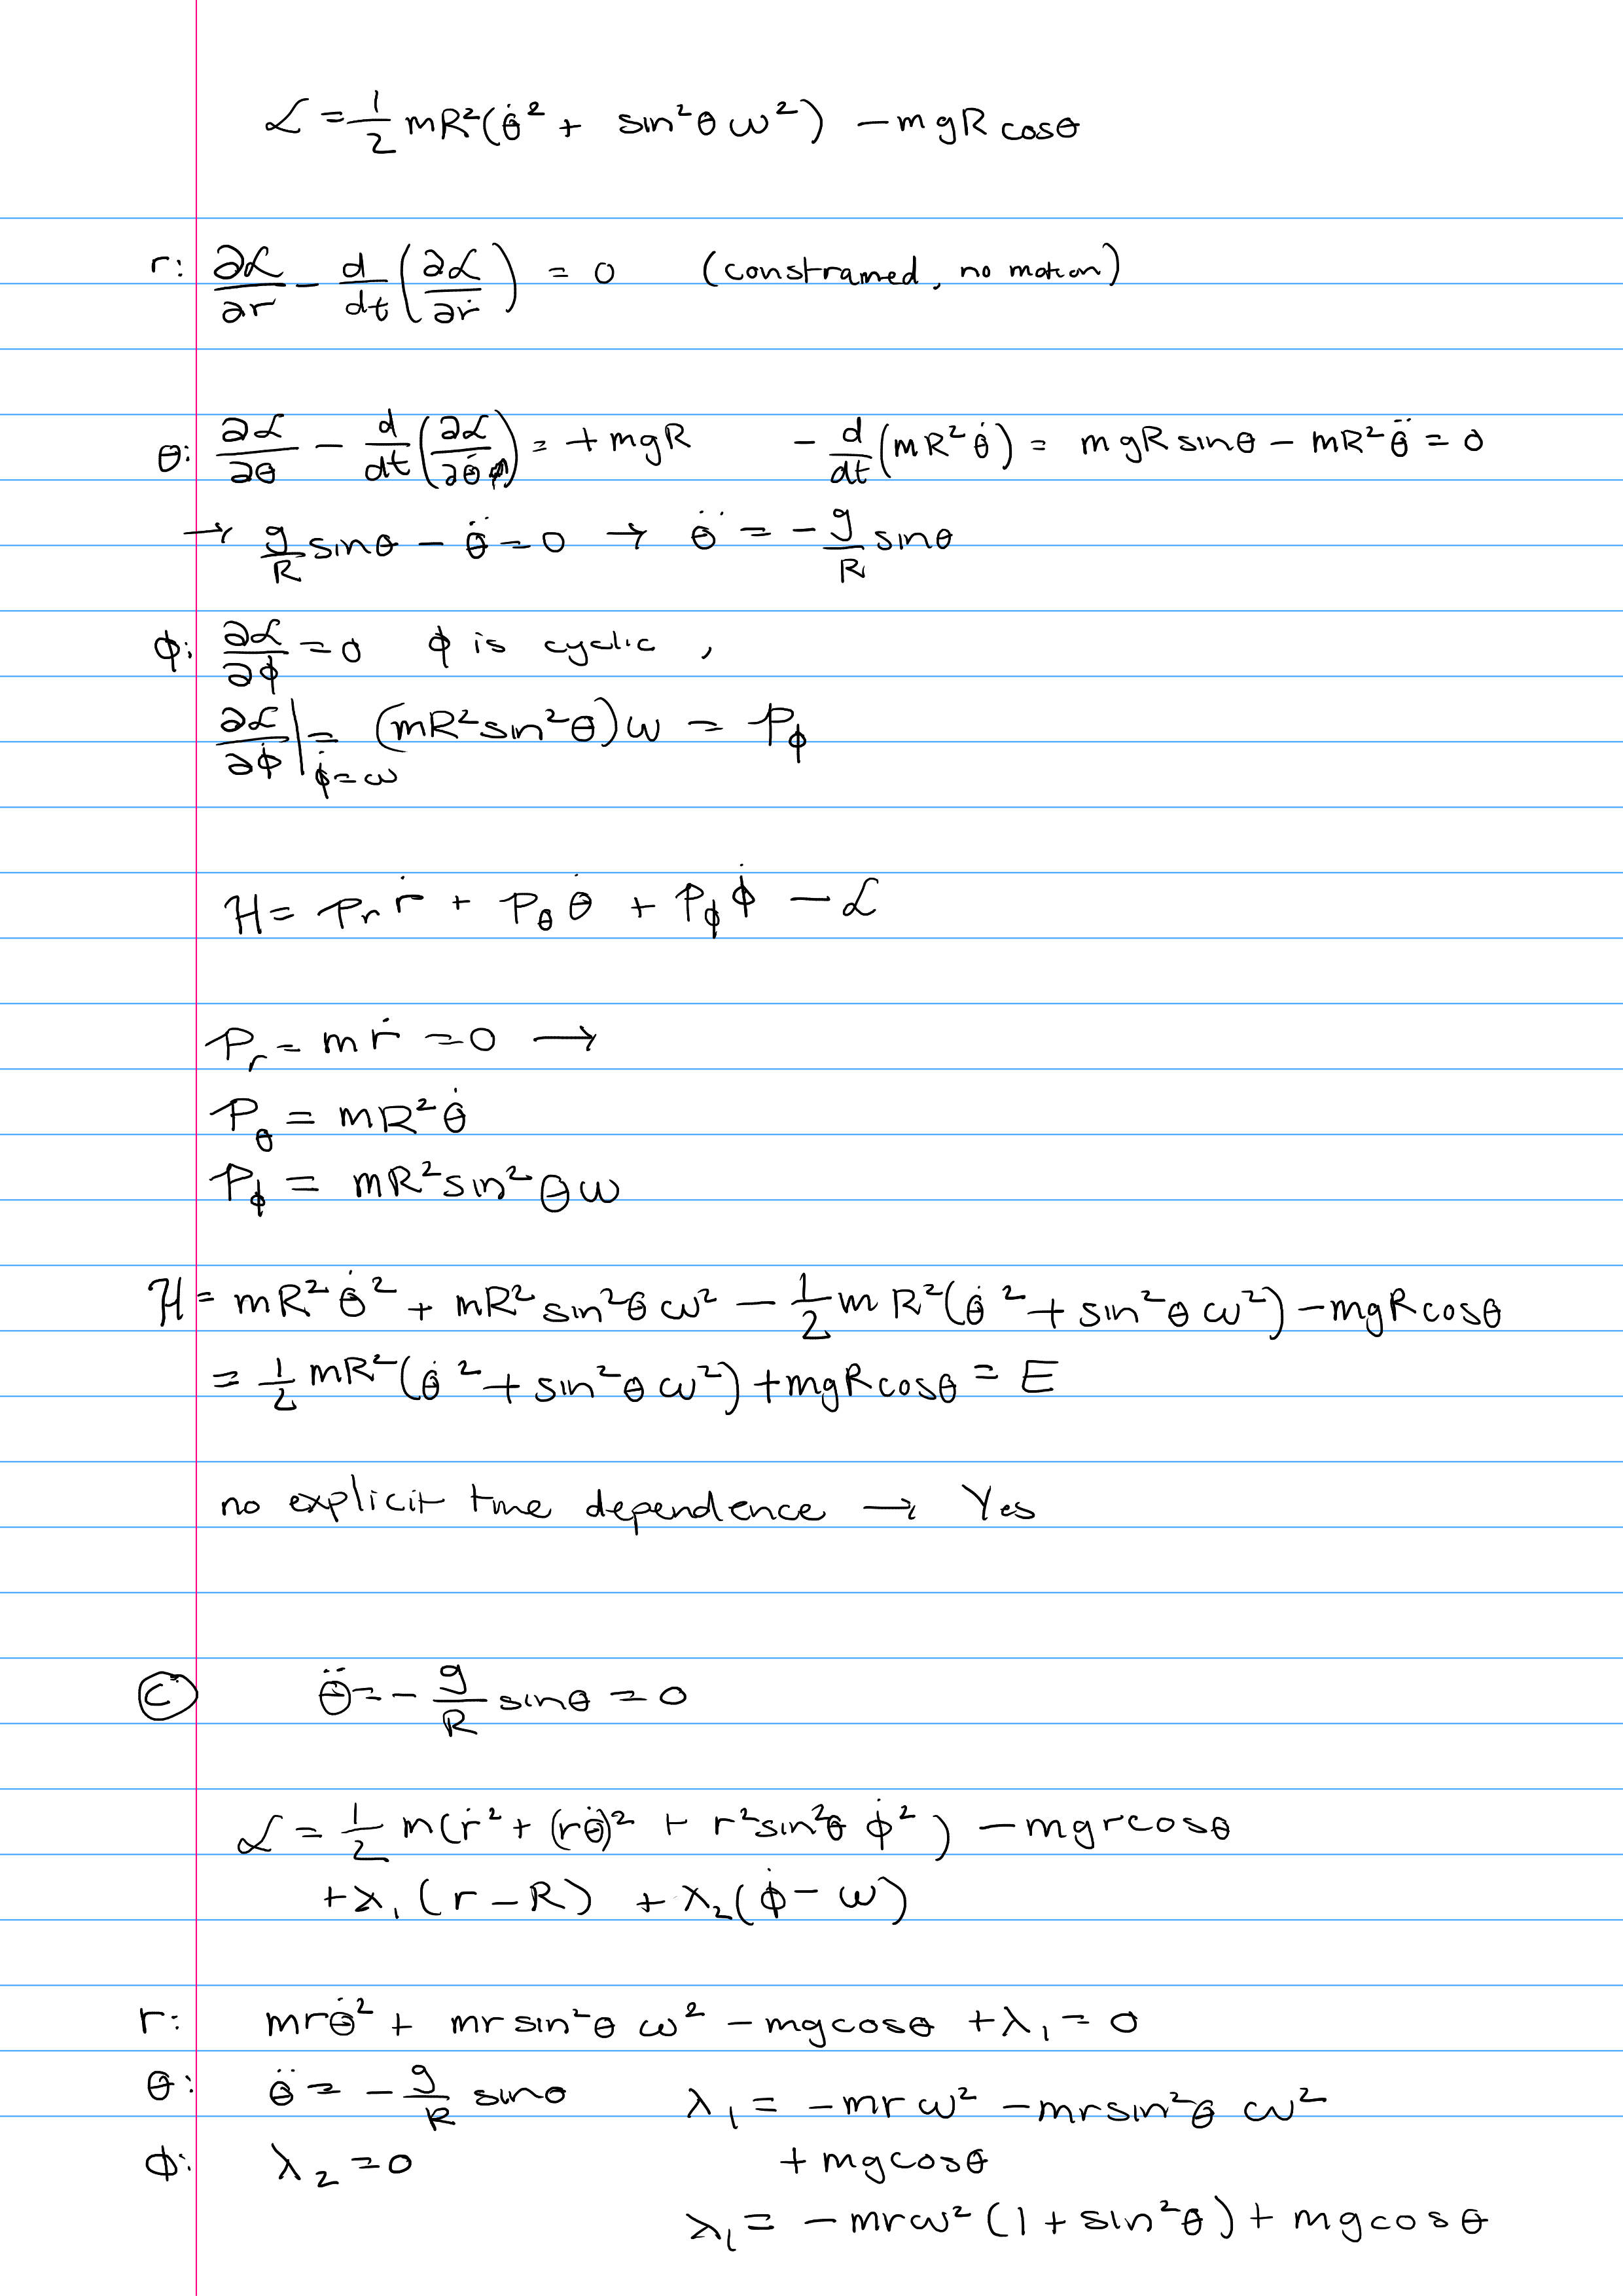 ℒ = 1/2 mR²(θ̇² + sin²θ ω²) − mgR cosθ
r: ∂ℒ/∂r − d/dt(∂ℒ/∂ṙ) = 0 (constrained, no motion)
θ: ∂ℒ/∂θ − d/dt(∂ℒ/∂θ̇) = +mgR − d/dt(mR²θ̇) = mgR sinθ − mR²θ̈ = 0
→ g/R sinθ − θ̈ = 0 → θ̈ = −g/R sinθ
ϕ: ∂ℒ/∂ϕ = 0 ϕ is cyclic ,
∂ℒ/∂ϕ̇ |ϕ̇=ω = (mR²sin²θ)ω = Pϕ
ℋ = Pr ṙ + Pθ θ̇ + Pϕ ϕ̇ − ℒ
Pr = mṙ = 0 →
Pθ = mR²θ̇
Pϕ = mR²sin²θω
ℋ = mR²θ̇² + mR² sin²θ ω² − 1/2 mR²(θ̇² + sin²θ ω²) − mgR cosθ
= 1/2 mR²(θ̇² + sin²θ ω²) + mgR cosθ = E
no explicit time dependence → Yes
(c) θ̈ = −g/R sinθ = 0
ℒ = 1/2 m(ṙ² + (rθ̇)² + r²sin²θ ϕ̇²) − mgr cosθ
+λ₁(r − R) + λ₂(ϕ̇ − ω)
r: mrθ̇² + mr sin²θ ω² − mg cosθ + λ₁ = 0
θ: θ̈ = −g/R sinθ λ₁ = −mrω² − mr sin²θ ω²
ϕ: λ₂ = 0 + mg cosθ
λ₁ = −mrω²(1 + sin²θ) + mg cosθ